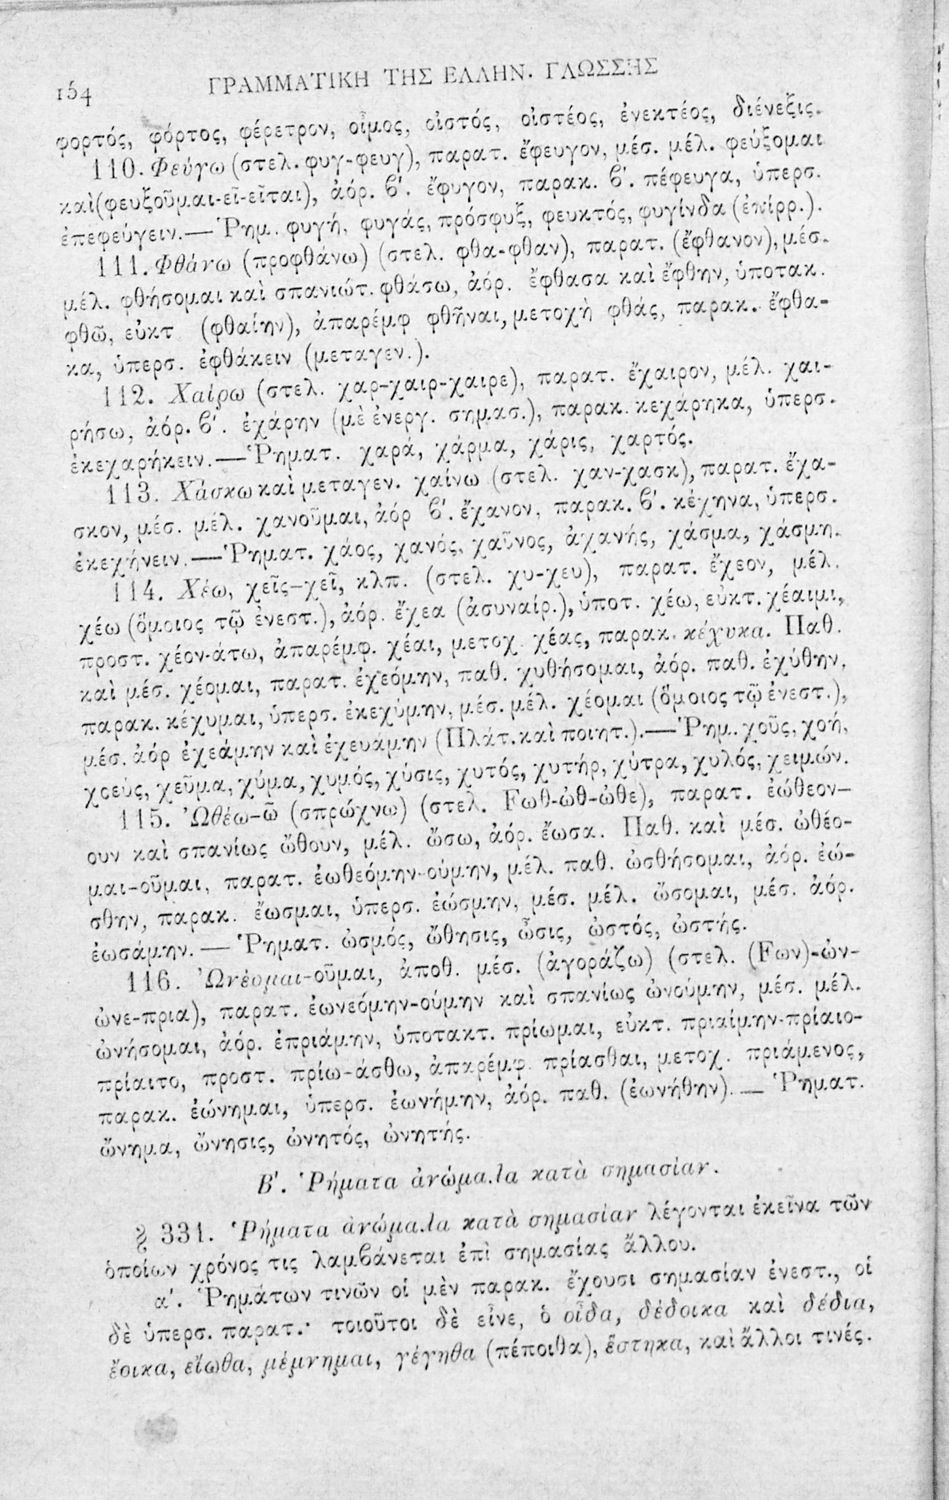 154 ΓΡΑΜΜΑΤΙΚΗ ΤΗΣ ΕΛΛΗΝ. ΓΛΩΣΣΗΣ
φορτός, φόρτος, φέρετρον, οἶμος, οἰστός, οἰστέος, ἐνεκτέος, διένεξις.
110. Φεύγω (στελ. φυγ-φευγ), παρατ. ἔφευγον, μέσ. μέλ. φεύξομαι
καὶ (φευξοῦμαι-εῖ-εῖται), ἀόρ. β΄. ἔφυγον, παρακ. β΄. πέφευγα, ὑπερσ.
ἐπεφεύγειν.— Ῥημ. φυγή, φυγάς, πρόσφυξ, φευκτός, φυγίνδα (ἐπίρρ.).
111. Φθάνω (προφθάνω) (στελ. φθα-φθαν), παρατ. (ἔφθανον), μέσ.
μέλ. φθήσομαι καὶ σπανιώτ. φθάσω, ἀόρ. ἔφθασα καὶ ἔφθην, ὑποτακ.
φθῶ, εὐκτ (φθαίην), ἀπαρέμφ φθῆναι, μετοχὴ φθάς, παρακ. ἔφθα-
κα, ὑπερσ. ἐφθάκειν (μεταγεν.).
112. Χαίρω (στελ. χαρ-χαιρ-χαιρε), παρατ. ἔχαιρον, μέλ. χαι-
ρήσω, ἀόρ. β΄. ἐχάρην (μὲ ἐνεργ. σημασ.), παρακ. κεχάρηκα, ὑπερσ.
ἐκεχαρήκειν.—Ῥηματ. χαρά, χάρμα, χάρις, χαρτός.
113. Χάσκω καὶ μεταγεν. χαίνω (στελ. χαν-χασκ), παρατ. ἔχα-
σκον, μέσ. μέλ. χανοῦμαι, ἀόρ β΄. ἔχανον, παρακ. β΄. κέχηνα, ὑπερσ.
ἐκεχήνειν.—Ῥηματ. χάος, χανός, χαῦνος, ἀχανής, χάσμα, χάσμη.
114. Χέω, χεῖς-χεῖ, κλπ. (στελ. χυ-χευ), παρατ. ἔχεον, μέλ.
χέω (ὅμοιος τῷ ἐνεστ.), ἀόρ. ἔχεα (ἀσυναίρ.), ὑποτ. χέω, εὐκτ. χέαιμι,
προστ. χέον-άτω, ἀπαρέμφ. χέαι, μετοχ. χέας, παρακ. κέχυκα. Παθ.
καὶ μέσ. χέομαι, παρατ. ἐχεόμην, παθ. χυθήσομαι, ἀόρ. παθ. ἐχύθην,
παρακ. κέχυμαι, ὑπερσ. ἐκεχύμην, μέσ. μέλ. χέομαι (ὅμοιος τῷ ἐνεστ.),
μέσ. ἀόρ ἐχεάμην καὶ ἐχευάμην (Πλάτ. καὶ ποιητ.).—Ῥημ. χοῦς, χοή,
χοεύς, χεῦμα, χύμα, χυμός, χύσις, χυτός, χυτήρ, χύτρα, χυλός, χειμών.
115. Ὠθέω-ῶ (σπρώχνω) (στελ. Fωθ-ὠθ-ὠθε), παρατ. ἐώθεον-
ουν καὶ σπανίως ὤθουν, μέλ. ὤσω, ἀόρ. ἔωσα. Παθ. καὶ μέσ. ὠθέο-
μαι-οῦμαι, παρατ. ἐωθεόμην-ούμην, μέλ. παθ. ὠσθήσομαι, ἀόρ. ἐώ-
σθην, παρακ. ἔωσμαι, ὑπερσ. ἐώσμην, μέσ. μέλ. ὤσομαι, μέσ. ἀόρ.
ἐωσάμην. — Ῥηματ. ὠσμός, ὤθησις, ὦσις, ὠστός, ὠστής.
116. Ὠνέομαι-οῦμαι, ἀποθ. μέσ. (ἀγοράζω) (στελ. (Fων)-ὠν-
ὠνε-πρια), παρατ. ἐωνεόμην-ούμην καὶ σπανίως ὠνούμην, μέσ. μέλ.
ὠνήσομαι, ἀόρ. ἐπριάμην, ὑποτακτ. πρίωμαι, εὐκτ. πριαίμην-πρίαιο-
πρίαιτο, προστ. πρίω-άσθω, ἀπαρέμφ. πρίασθαι, μετοχ. πριάμενος,
παρακ. ἐώνημαι, ὑπερσ. ἐωνήμην, ἀόρ. παθ. (ἐωνήθην). — Ῥηματ.
ὤνημα, ὤνησις, ὠνητός, ὠνητής.
Β΄. Ῥήματα ἀνώμαλα κατὰ σημασίαν.
§ 331. Ῥήματα ἀνώμαλα κατὰ σημασίαν λέγονται ἐκεῖνα τῶν
ὁποίων χρόνος τις λαμβάνεται ἐπὶ σημασίας ἄλλου.
α΄. Ῥημάτων τινῶν οἱ μὲν παρακ. ἔχουσι σημασίαν ἐνεστ., οἱ
δὲ ὑπερσ. παρατ.· τοιοῦτοι δὲ εἶνε, ὁ οἶδα, δέδοικα καὶ δέδια,
ἔοικα, εἴωθα, μέμνημαι, γέγηθα (πέποιθα), ἕστηκα, καὶ ἄλλοι τινές.